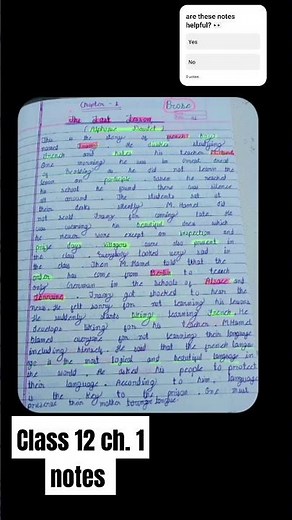 are these notes
helpful? 👀
Yes
No
Chapter - 1
Prose
The Last Lesson
(Alphonse Daudet)
This is the story of
named Franz. He studying
French and hates his teacher
One morning he was in great dread
of because he did not learn the
lesson on participle. When he reached
to school he found there was silence
all around. The students sat at
their desks silently. M. Hamel did
not scold Franz for coming late. He
was wearing his beautiful dress which
he never wore except on inspection and
prize days. Villagers were also present in
the class. Everybody looked very sad in
the class. Then M. Hamel told that the
order has come from Berlin to teach
only German in the schools of Alsace and
Lorraine. Franz got shocked to hear the
news. He felt sorry for not learning his lessons.
He suddenly starts liking learning French. He
develops liking for his teacher. M. Hamel
blamed everyone for not learning their language
including himself. He said that the french langu-
ge is the most logical and beautiful language in
the world. He asked his people to protect
their language. According to him, language
is the key to the prison. One must
preserve their mother tongue
Class 12 ch. 1
notes